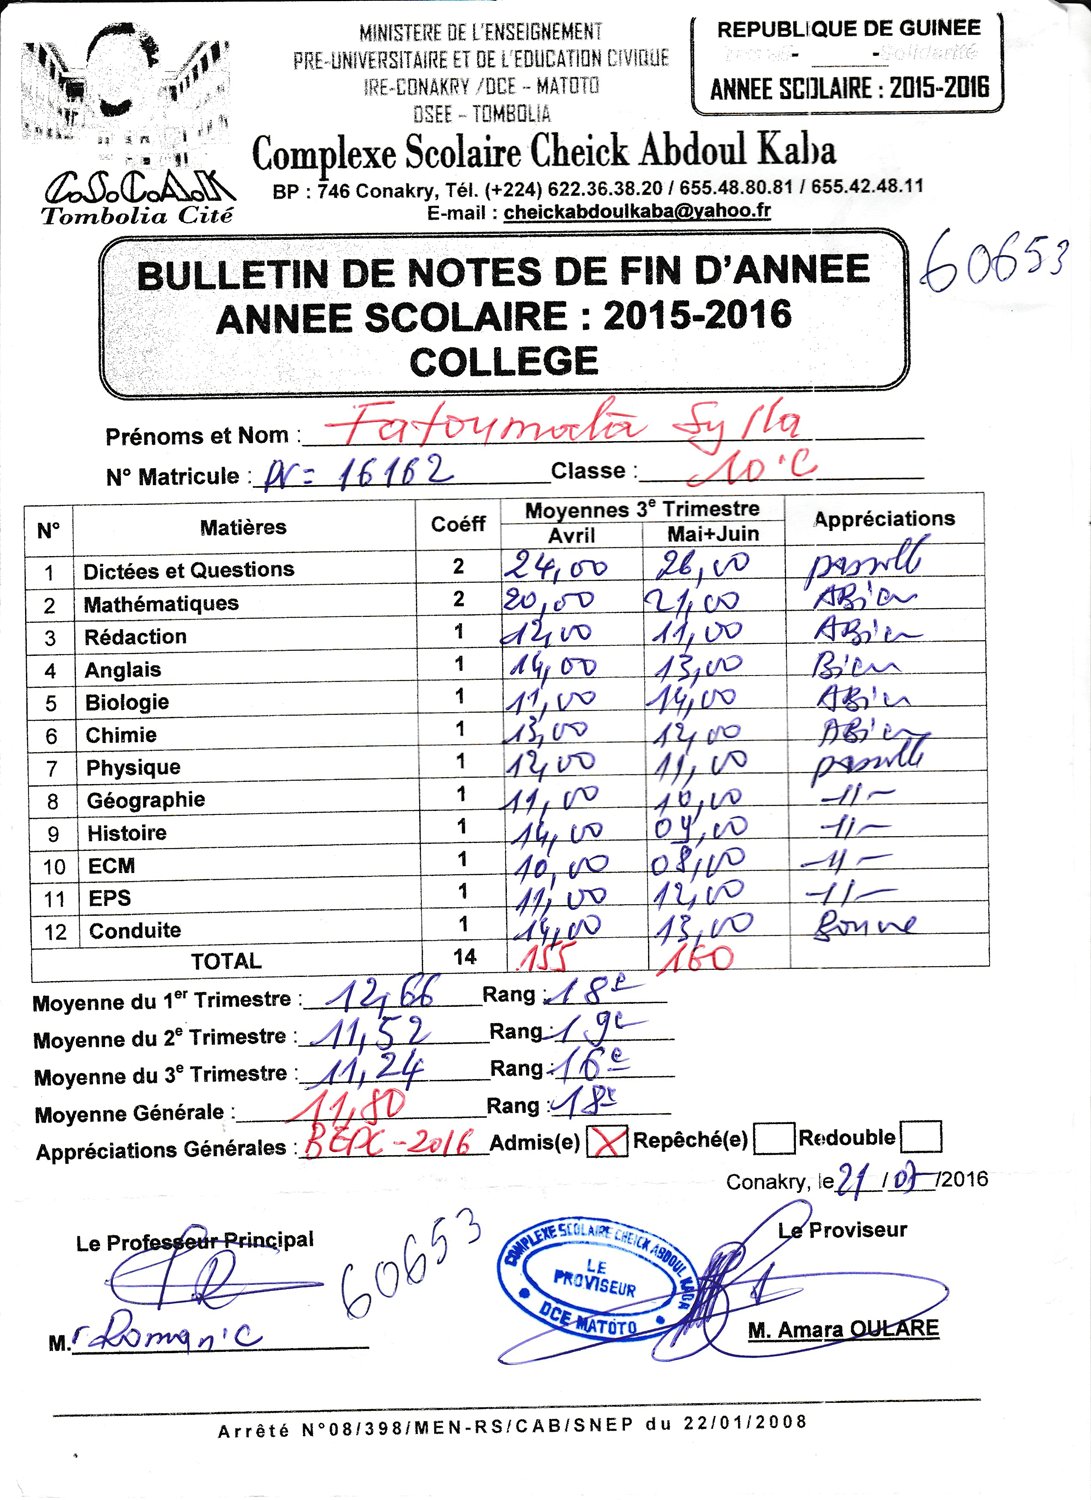 MINISTERE DE L'ENSEIGNEMENT
PRE-UNIVERSITAIRE ET DE L'EDUCATION CIVIQUE
IRE-CONAKRY /DCE – MATOTO
DSEE – TOMBOLIA
REPUBLIQUE DE GUINEE
- -Solidarité
ANNEE SCOLAIRE : 2015-2016
Complexe Scolaire Cheick Abdoul Kaba
C.S.C.A.K
Tombolia Cité
BP : 746 Conakry, Tél. (+224) 622.36.38.20 / 655.48.80.81 / 655.42.48.11
E-mail : cheickabdoulkaba@yahoo.fr
BULLETIN DE NOTES DE FIN D'ANNEE
ANNEE SCOLAIRE : 2015-2016
COLLEGE
60653
Prénoms et Nom : Fatoumata Sylla
N° Matricule : PV = 16162 Classe : 10°C
N° Matières Coéff Moyennes 3e Trimestre Appréciations
Avril Mai+Juin
1 Dictées et Questions 2 24,00 26,00 passable
2 Mathématiques 2 20,00 21,00 ABien
3 Rédaction 1 12,00 11,00 ABien
4 Anglais 1 14,00 13,00 Bien
5 Biologie 1 11,00 14,00 ABien
6 Chimie 1 13,00 12,00 ABien
7 Physique 1 12,00 11,00 passable
8 Géographie 1 11,00 10,00 -//-
9 Histoire 1 14,00 09,00 -//-
10 ECM 1 10,00 08,00 -//-
11 EPS 1 11,00 12,00 -//-
12 Conduite 1 14,00 13,00 Bonne
TOTAL 14 155 160
Moyenne du 1er Trimestre : 12,66 Rang : 18e
Moyenne du 2e Trimestre : 11,52 Rang : 19e
Moyenne du 3e Trimestre : 11,24 Rang : 16e
Moyenne Générale : 11,80 Rang : 18e
Appréciations Générales : BEPC-2016 Admis(e) X Repêché(e) Redouble
Conakry, le 21/07/2016
Le Professeur Principal
60653
Le Proviseur
COMPLEXE SCOLAIRE CHEICK ABDOUL KABA
LE
PROVISEUR
DCE MATOTO
M. r Romanic
M. Amara OULARE
Arrêté N°08/398/MEN-RS/CAB/SNEP du 22/01/2008